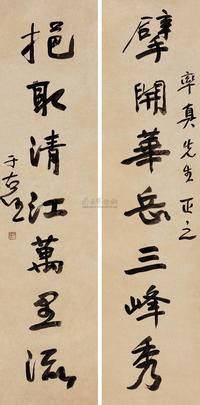 率真先生正之
擘開華岳三峰秀
挹取清江萬里流
于右任